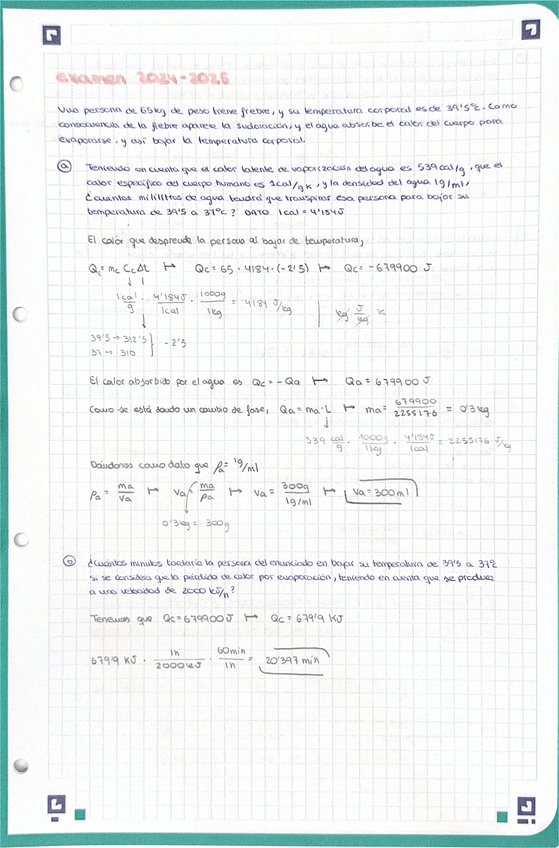 examen 2024-2025
Una persona de 65kg de peso tiene fiebre, y su temperatura corporal es de 39'5ºC. Como
consecuencia de la fiebre aparece la sudoración, y el agua absorbe el calor del cuerpo para
evaporarse, y así bajar la temperatura corporal.
a Teniendo en cuenta que el calor latente de vaporización del agua es 539 cal/g, que el
calor específico del cuerpo humano es 1cal/gK, y la densidad del agua 1g/ml,
¿cuántos mililitros de agua tendrá que transpirar esa persona para bajar su
temperatura de 39'5 a 37ºC? DATO 1cal = 4'184J
El calor que desprende la persona al bajar de temperatura,
Qc = mc Cc Δt ↦ Qc = 65 · 4184 · (-2'5) ↦ Qc = -679900 J
1cal/g · 4'184J/1cal · 1000g/1kg = 4184 J/kg | kg · J/kg · K
39'5 → 312'5
37 → 310 } -2'5
El calor absorbido por el agua es Qc = -Qa ↦ Qa = 679900 J
Como se está dando un cambio de fase, Qa = ma·L ↦ ma = 679900/2255176 = 0'3 kg
539 cal/g · 1000g/1kg · 4'184J/1cal = 2255176 J/kg
Dándonos como dato que ρa = 1g/ml
ρa = ma/Va ↦ Va = ma/ρa ↦ Va = 300g/1g/ml ↦ Va = 300 ml
0'3 kg = 300g
b ¿Cuántos minutos tardaría la persona del enunciado en bajar su temperatura de 39'5 a 37º
si se considera que la pérdida de calor por evaporación, teniendo en cuenta que se produce
a una velocidad de 2000 kJ/h?
Tenemos que Qc = 679900 J ↦ Qc = 679'9 KJ
679'9 KJ · 1h/2000 kJ · 60min/1h = 20'397 min